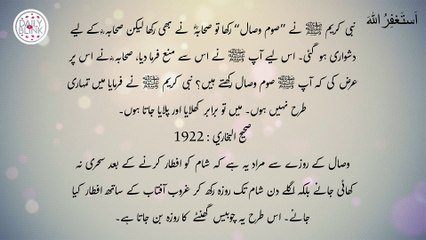 أَستَغفِرُ اللهَ
نبی کریم ﷺ نے ’’صوم وصال‘‘ رکھا تو صحابہؓ نے بھی رکھا لیکن صحابہؓ کے لیے
دشواری ہو گئی۔ اس لیے آپ ﷺ نے اس سے منع فرما دیا، صحابہؓ نے اس پر
عرض کی کہ آپ ﷺ صوم وصال رکھتے ہیں؟ نبی کریم ﷺ نے فرمایا میں تمہاری
طرح نہیں ہوں۔ میں تو برابر کھلایا اور پلایا جاتا ہوں۔
صحيح البخاري : 1922
وصال کے روزے سے مراد یہ ہے کہ شام کو افطار کرنے کے بعد سحری نہ
کھائی جائے بلکہ اگلے دن شام تک روزہ رکھ کر غروب آفتاب کے ساتھ افطار کیا
جائے۔ اس طرح یہ چوبیس گھنٹے کا روزہ بن جاتا ہے۔